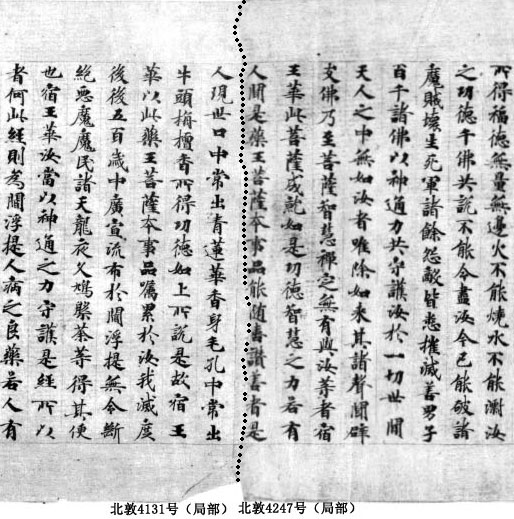 所得福德無量無邊火不能燒水不能漂汝
之功德千佛共說不能令盡汝今已能破諸
魔賊壞生死軍諸餘怨敵皆悉摧滅善男子
百千諸佛以神通力共守護汝於一切世間
天人之中無如汝者唯除如來其諸聲聞辟
支佛乃至菩薩智慧禪定無有與汝等者宿
王華此菩薩成就如是功德智慧之力若有
人聞是藥王菩薩本事品能隨喜讚善者是
人現世口中常出青蓮華香身毛孔中常出
牛頭栴檀香所得功德如上所說是故宿王
華以此藥王菩薩本事品囑累於汝我滅度
後後五百歲中廣宣流布於閻浮提無令斷
絕惡魔魔民諸天龍夜叉鳩槃荼等得其便
也宿王華汝當以神通之力守護是經所以
者何此經則為閻浮提人病之良藥若人有
北敦4131号（局部）
北敦4247号（局部）